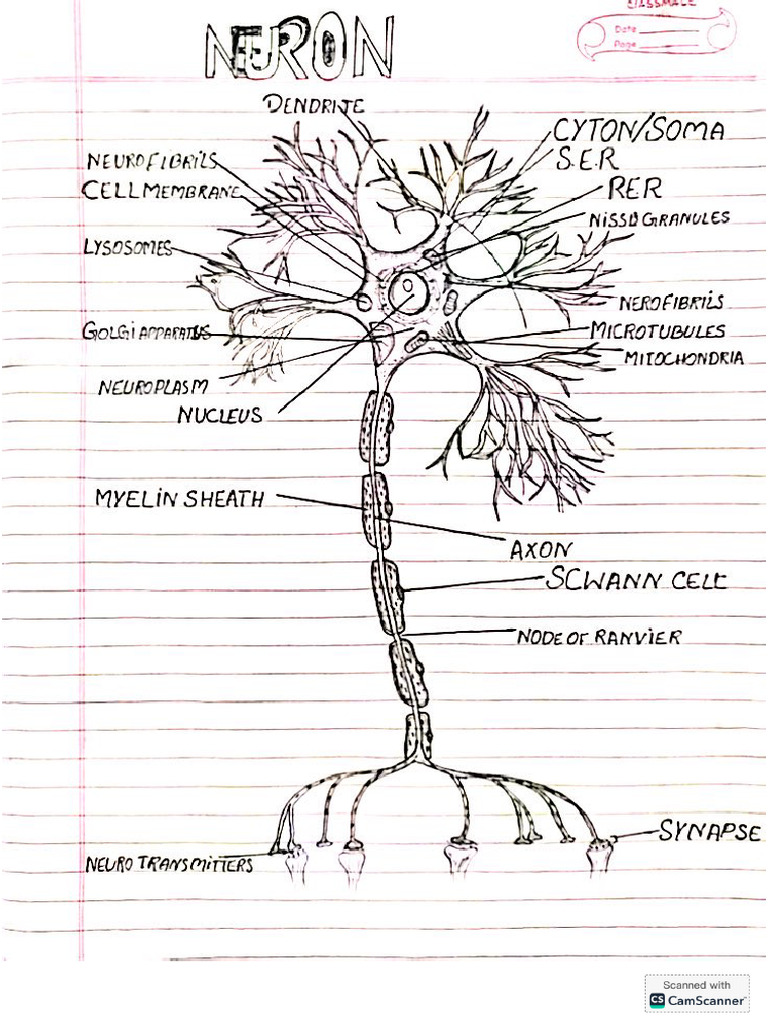 CLASSMATE
Date
Page
NEURON
DENDRITE
CYTON/SOMA
S.E.R
RER
NISSL GRANULES
NEUROFIBRILS
CELL MEMBRANE
LYSOSOMES
NEROFIBRILS
GOLGI APPARATUS
MICROTUBULES
MITOCHONDRIA
NEUROPLASM
NUCLEUS
MYELIN SHEATH
AXON
SCWANN CELL
NODE OF RANVIER
SYNAPSE
NEURO TRANSMITTERS
Scanned with
CS CamScanner